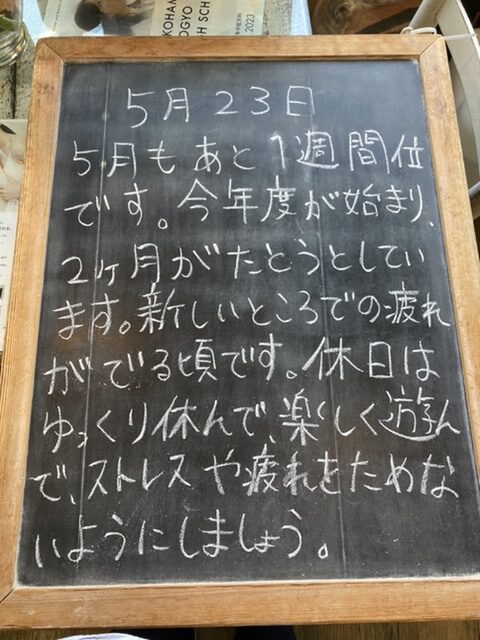 KOHAM
OGYO
H SCH
.2023
5月23日
5月もあと1週間位
です。今年度が始まり、
2ヶ月がたとうとしてい
ます。新しいところでの疲れ
がでる頃です。休日は
ゆっくり休んで、楽しく遊ん
で、ストレスや疲れをためな
いようにしましょう。